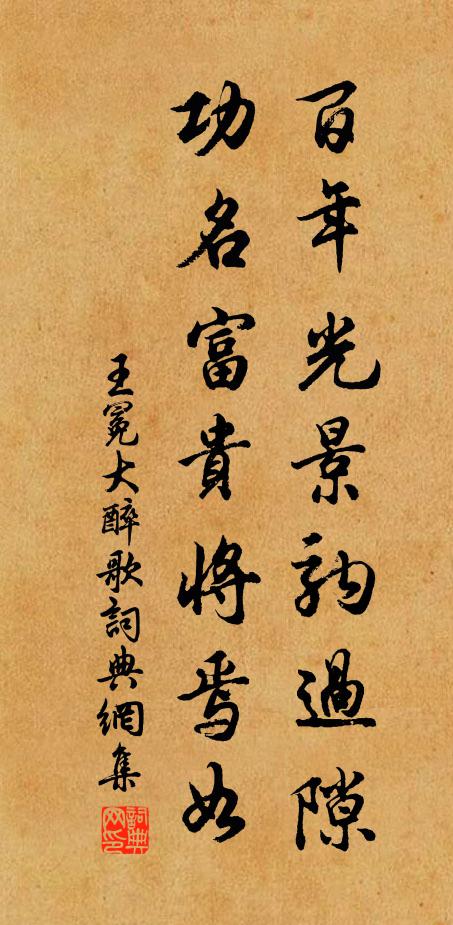 百年光景駒過隙
功名富貴將焉如
王冕大醉歌詞典網集
詞典網印